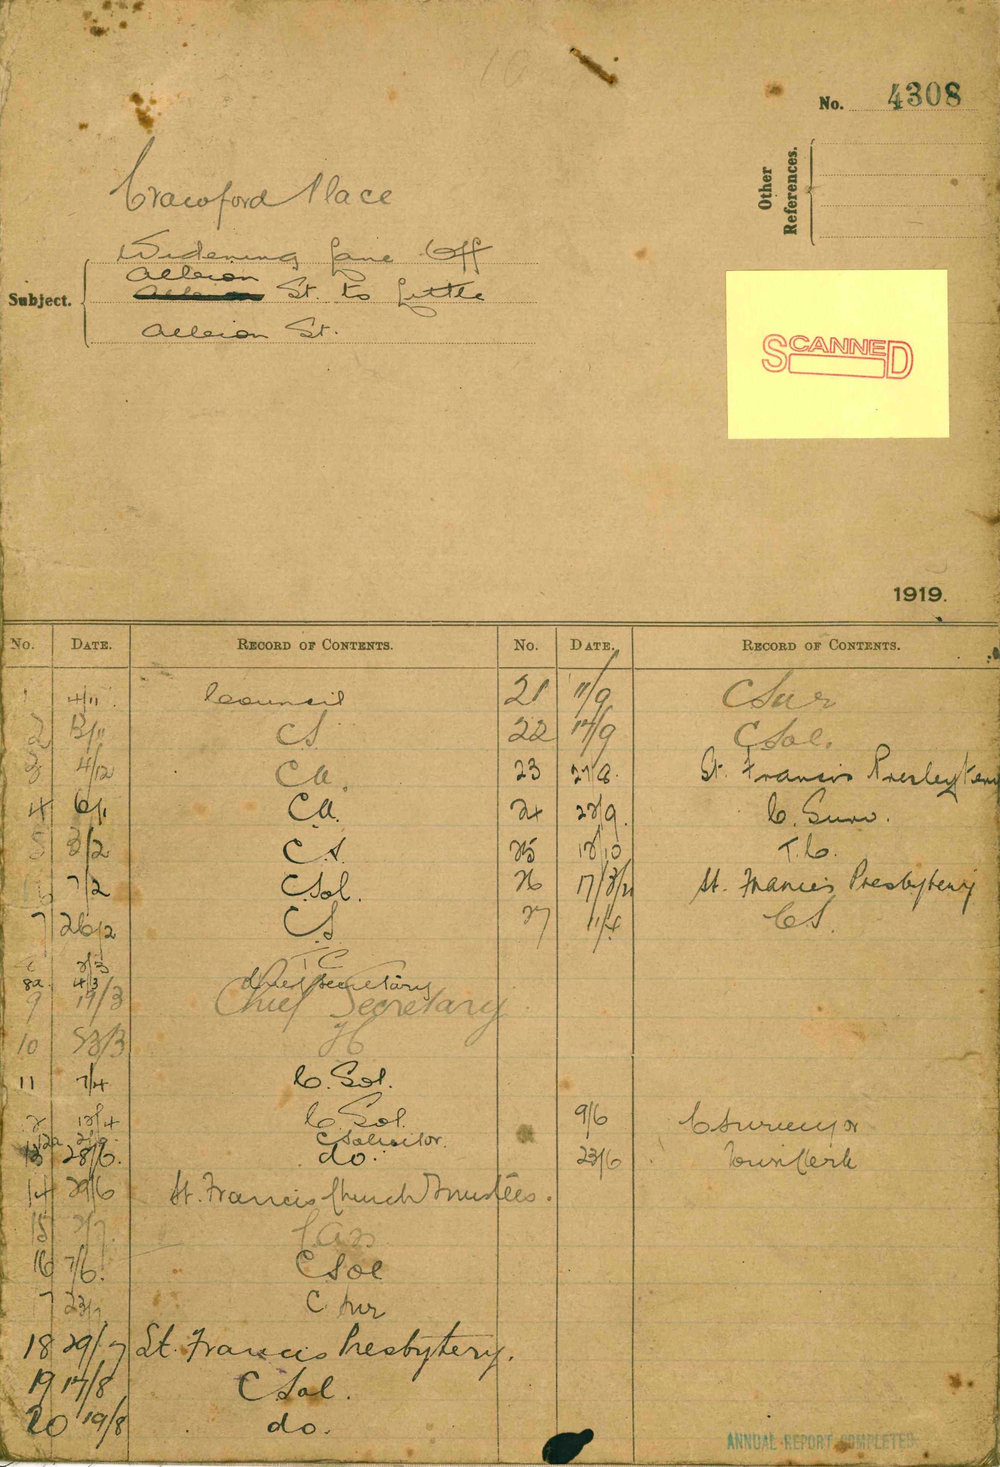 No. 4308
Other References.
Crawford Place
Subject.
Widening Lane Off
Albion
St. to Little
Albion St.
SCANNED
1919.
No. DATE. RECORD OF CONTENTS. No. DATE. RECORD OF CONTENTS.
1 4/11 Council
2 13/11 CS
3 4/12 C.A.
4 6/1 C.A.
5 3/2 C.S.
6 7/2 C.Sol.
7 26/2 C.S
2/3 TC
8a 4/3 Chief Secretary
9 19/3 Chief Secretary
10
11 7/4 C. Sol.
12/4 C. Sol.
12a C Solicitor.
13 28/6. do.
14 29/6 St. Francis Church Trustees.
15
16 7/6. C Sol
17 23/7 C Sur
18 29/7 St. Francis Presbytery.
19 14/8 C Sol.
20 19/8 do.
21 11/9 C Sur
22 14/9 C Sol.
23 St. Francis Presbytery
24 22/9. C. Surv.
25 T.C.
26 17/3/21 St. Francis Presbytery
27 11/4 C S.
9/6 C Surveyor
23/6 Town Clerk
ANNUAL REPORT COMPLETED